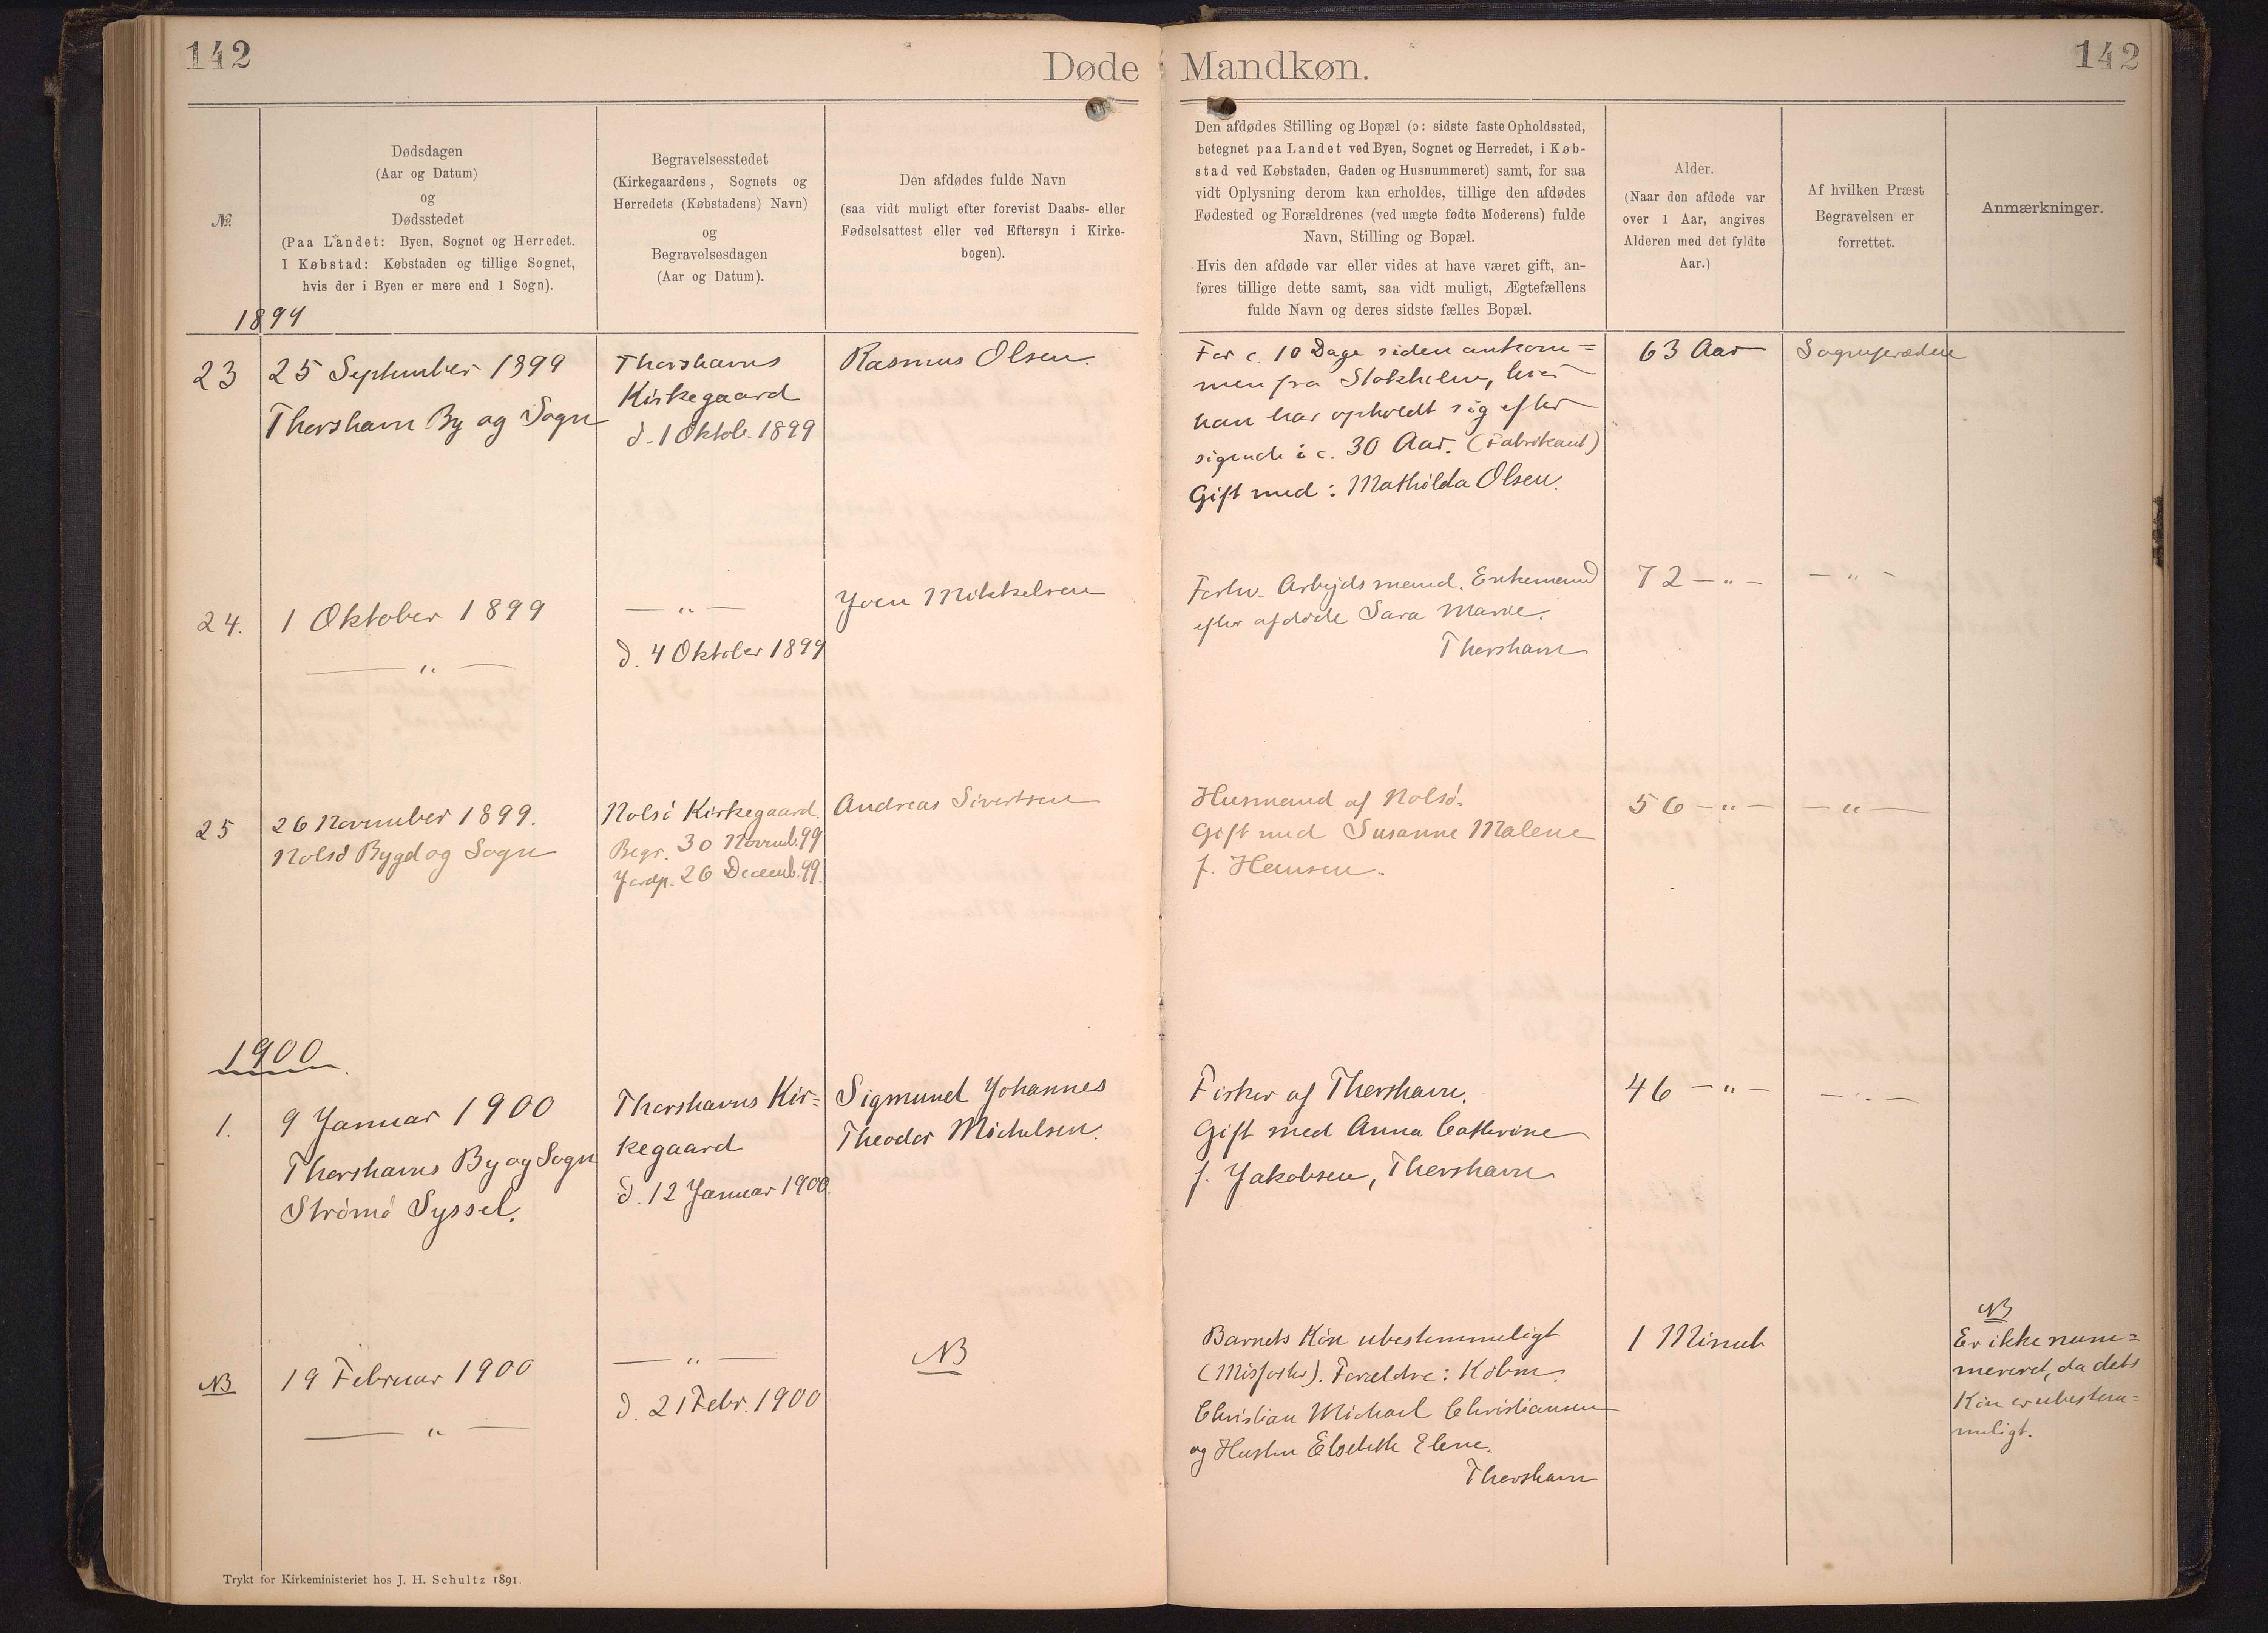 142
Døde Mandkøn.
142
№
Dødsdagen
(Aar og Datum)
og
Dødsstedet
(Paa Landet: Byen, Sognet og Herredet.
I Købstad: Købstaden og tillige Sognet,
hvis der i Byen er mere end 1 Sogn).
Begravelsesstedet
(Kirkegaardens, Sognets og
Herredets (Købstadens) Navn)
og
Begravelsesdagen
(Aar og Datum).
Den afdødes fulde Navn
(saa vidt muligt efter forevist Daabs- eller
Fødselsattest eller ved Eftersyn i Kirke-
bogen).
Den afdødes Stilling og Bopæl (ɔ: sidste faste Opholdssted,
betegnet paa Landet ved Byen, Sognet og Herredet, i Køb-
stad ved Købstaden, Gaden og Husnummeret) samt, for saa
vidt Oplysning derom kan erholdes, tillige den afdødes
Fødested og Forældrenes (ved uægte fødte Moderens) fulde
Navn, Stilling og Bopæl.
Hvis den afdøde var eller vides at have været gift, an-
føres tillige dette samt, saa vidt muligt, Ægtefællens
fulde Navn og deres sidste fælles Bopæl.
Alder.
(Naar den afdøde var
over 1 Aar, angives
Alderen med det fyldte
Aar.)
Af hvilken Præst
Begravelsen er
forrettet.
Anmærkninger.
1899
23
25 September 1899
Thorshavn By og Sogn
Thorshavns
Kirkegaard
d. 1 Oktob. 1899
Rasmus Olsen.
For c. 10 Dage siden ankom=
men fra Stokholm, hvor
han har opholdt sig efter
sigende i c. 30 Aar. (Fabrikant)
Gift med: Mathilda Olsen.
63 Aar
Sognepræsten
24.
1 Oktober 1899
— " —
— " —
d. 4 Oktober 1899
Joen Mikkelsen
Forhv. Arbejdsmand. Enkemand
efter afdøde Sara Marie.
Thorshavn
72 — " —
— " —
25
26 November 1899.
Nolsø Bygd og Sogn
Nolsø Kirkegaard.
Begr. 30 Novemb. 99
Jordp. 26 Decemb. 99.
Andreas Sivertsen
Husmand af Nolsø.
Gift med Susanne Malene
f. Hansen.
56 — " —
— " —
1900.
1.
9 Januar 1900
Thorshavns By og Sogn
Strømø Syssel.
Thorshavns Kir=
kegaard
d. 12 Januar 1900.
Sigmund Johannes
Theodor Michelsen.
Fisker af Thorshavn.
Gift med Anna Cathrine
f. Jakobsen, Thorshavn
46 — " —
— " —
NB
19 Februar 1900
— " —
— " —
d. 21 Febr. 1900
NB
Barnets Køn ubestemmeligt
(Misfoster). Forældre: Købm.
Christian Michael Christiansen
og Hustru Elsebeth Elene.
Thorshavn
1 Minut
NB
Er ikke num=
mereret, da dets
Køn er ubestem=
meligt.
Trykt for Kirkeministeriet hos J. H. Schultz 1891.